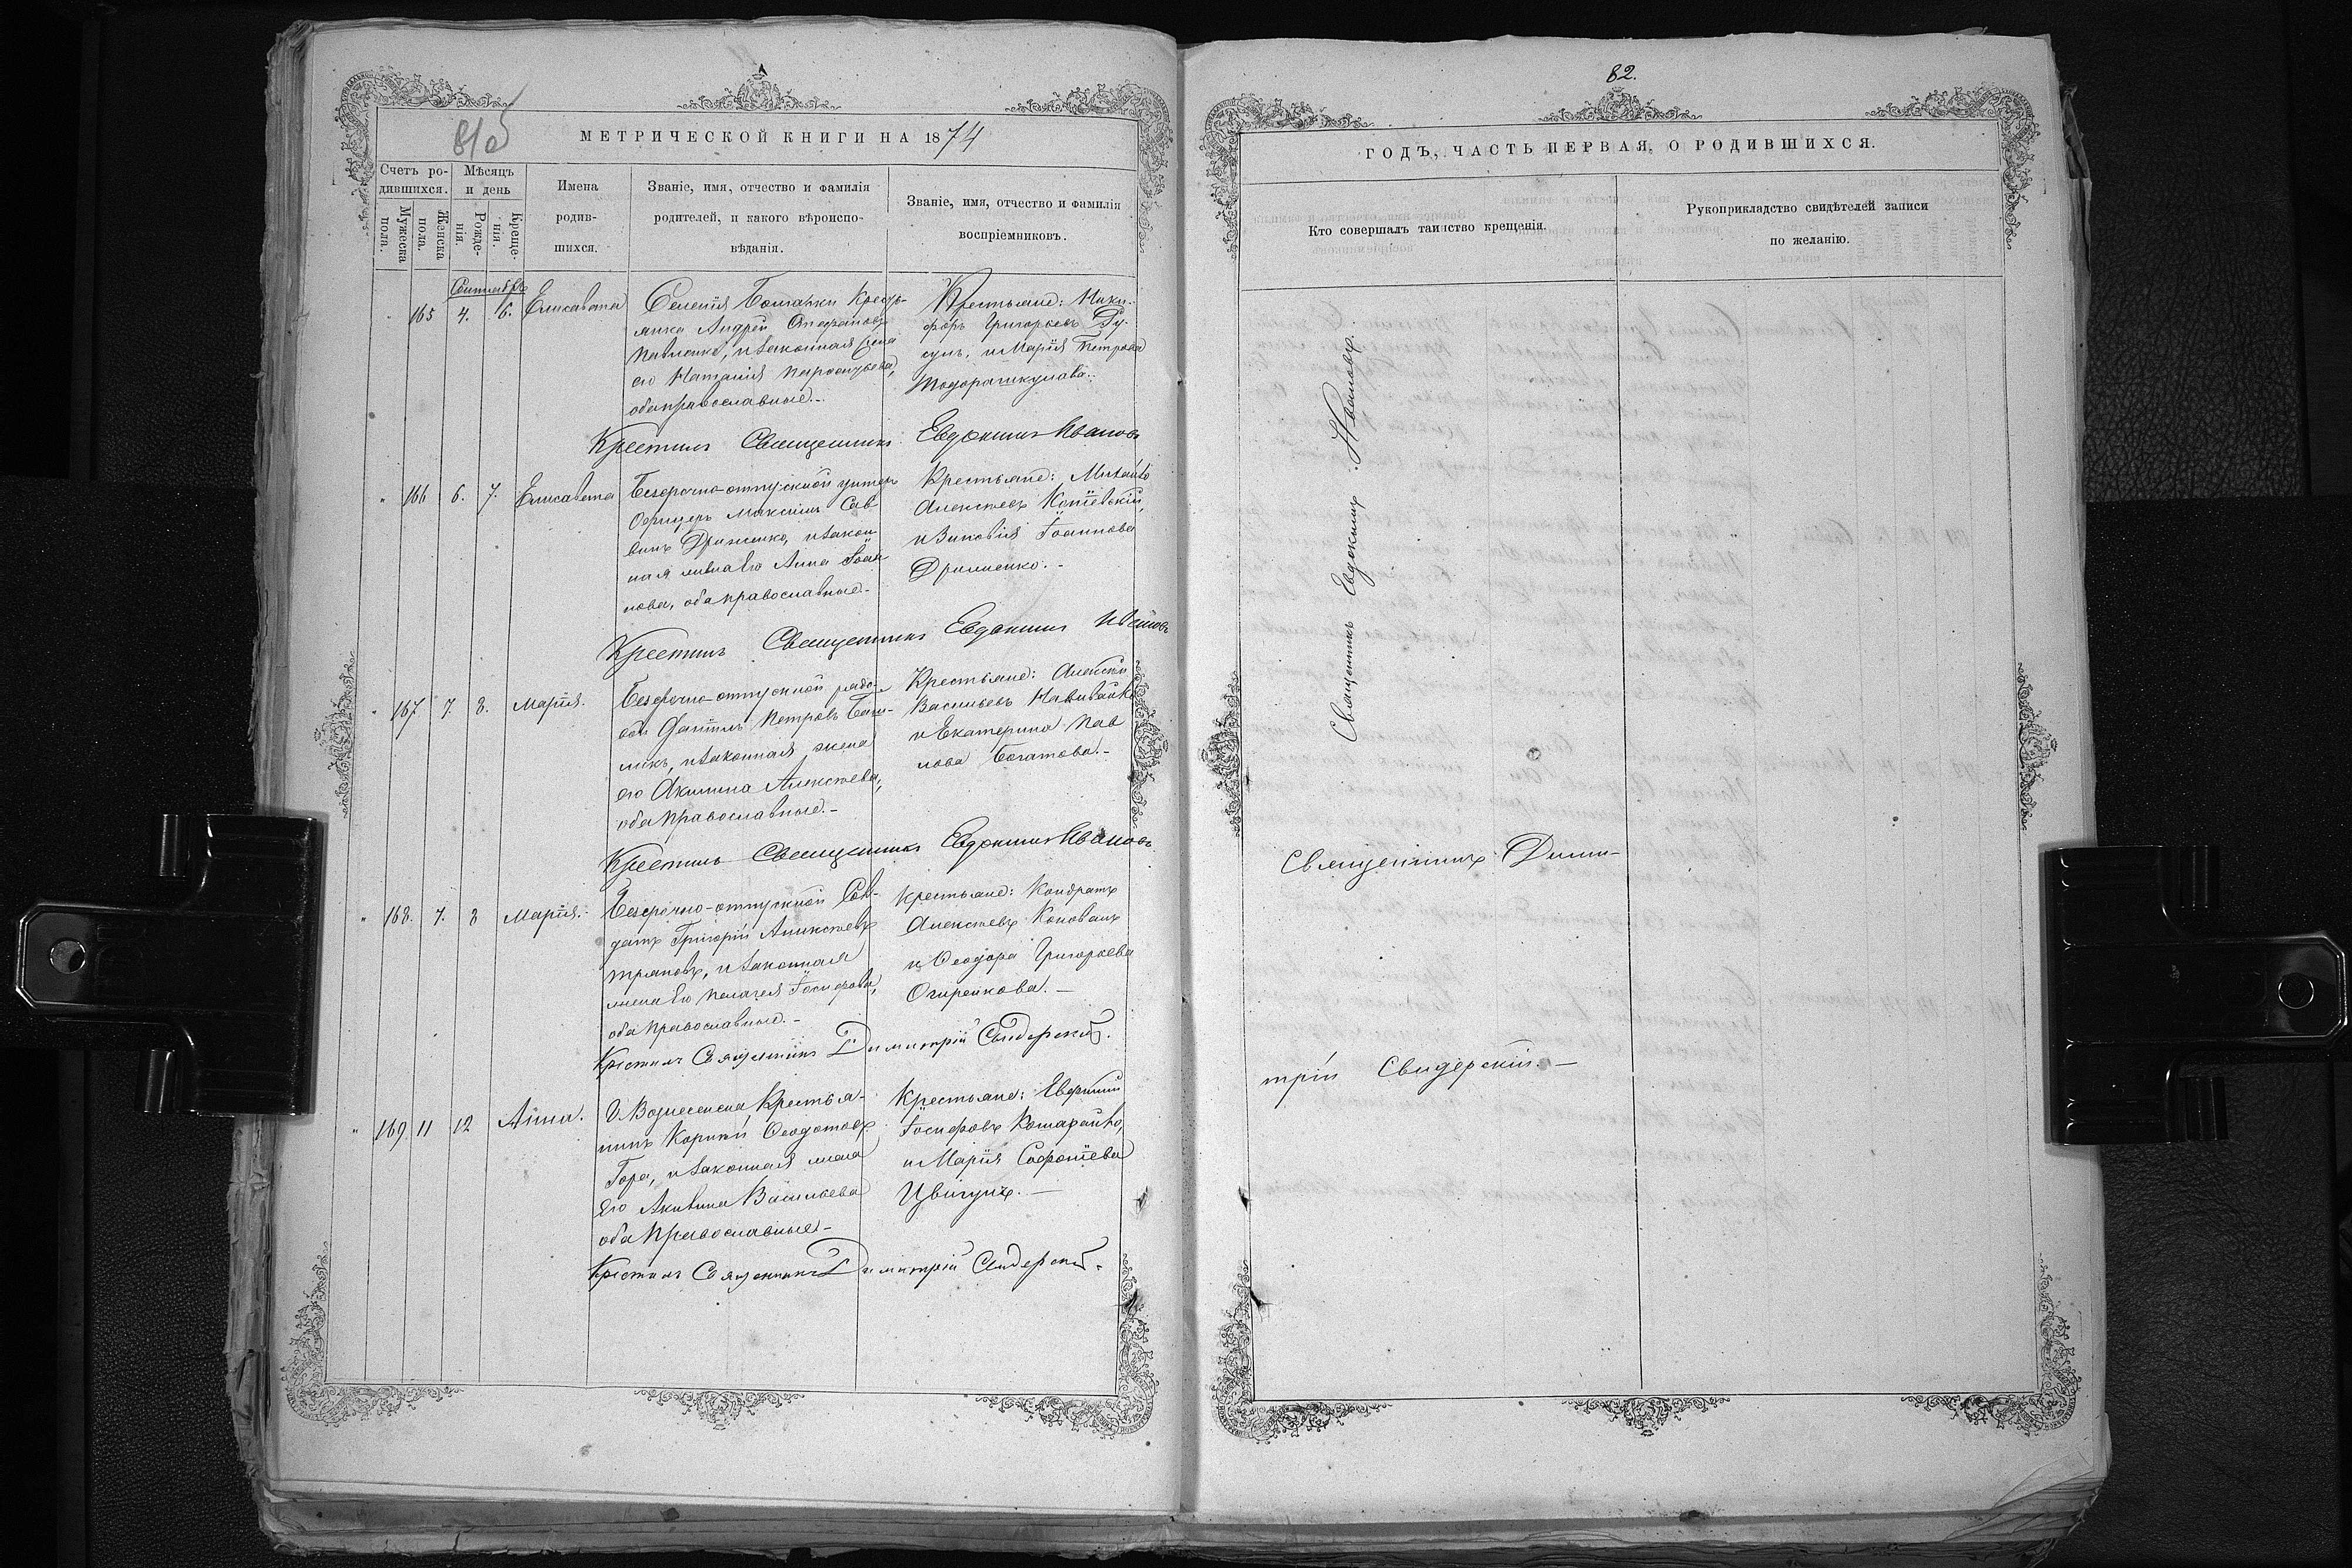 81об
МЕТРИЧЕСКОЙ КНИГИ НА 1874
Счетъ ро-
дившихся.
Мужеска
пола.
Женска
пола.
Мѣсяцъ
и день
Рожде-
нія.
Креще-
нія.
Имена
родив-
шихся.
Званіе, имя, отчество и фамилія
родителей, и какого вѣроиспо-
вѣданія.
Званіе, имя, отчество и фамилія
воспріемниковъ.
Сентябрь
165 4. 6. Елисавета
Селенія
Андрей
законная жена
его Наталія
оба православные.-
Крестьяне: Ники-
форъ Григорьевъ Гу-
и Марія Петрова
Крестилъ Священникъ Евдокимъ Ивановъ
" 166 6. 7. Елисавета
Безсрочно-отпускной унтеръ
Офицеръ Максимъ Сав-
винъ и закон
ная жена его Анна Іоан-
нова, оба православные.-
Крестьяне: Михаилъ
Алексѣевъ
и Зиновія Іоаннова
Крестилъ Священникъ Евдокимъ Ивановъ
" 167 7. 8. Марія.
Безсрочно-отпускной рядо-
вой Петровъ
и законная жена
его Акилина Алексѣева,
оба православные.-
Крестьяне: Алексѣй
Васильевъ
и Екатерина Пав
лова Богатова.-
Крестилъ Священникъ Евдокимъ Ивановъ
" 168. 7. 8 Марія.-
Безсрочно-отпускной Сол-
датъ Григорій Алексѣевъ
и законная
жена его Пелагея Іосифова,
оба православные.-
Крестьяне: Кондратъ
Алексѣевъ Коновалъ
и Ѳеодора Григорьева
Крестилъ Священникъ Димитрій Свидерскій.
" 169 11 12 Анна.
Вознесенска Крестья-
нинъ Корнилій Ѳеодотовъ
Гора, и законная жена
его Акилина Васильева
оба Православные.-
Крестьяне: Евфимій
Іосифовъ
и Марія Софоніева
Цвигунъ.-
Крестилъ Священникъ Димитрій Свидерскій.
82.
ГОДЪ, ЧАСТЬ ПЕРВАЯ, О РОДИВШИХСЯ.
Кто совершалъ таинство крещенія.
Рукоприкладство свидѣтелей записи
по желанію.
Священникъ Евдокимъ Ивановъ.
Священникъ Дими-
трій Свидерскій.-